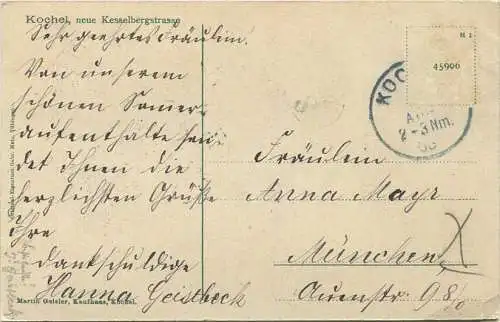 Kochel, neue Kesselbergstrasse
Sehr geehrtes Fräulein!
Von unserem
schönen Sommer-
aufenthalte sen-
det Ihnen die
herzlichsten Grüße
Ihre
dankschuldige
Hanna Geistbeck
Martin Geisler, Kaufhaus, Kochel.
H 1
45990
KOC
2-3 Nm.
Fräulein
Anna Mayr
München
Auenstr 98/0